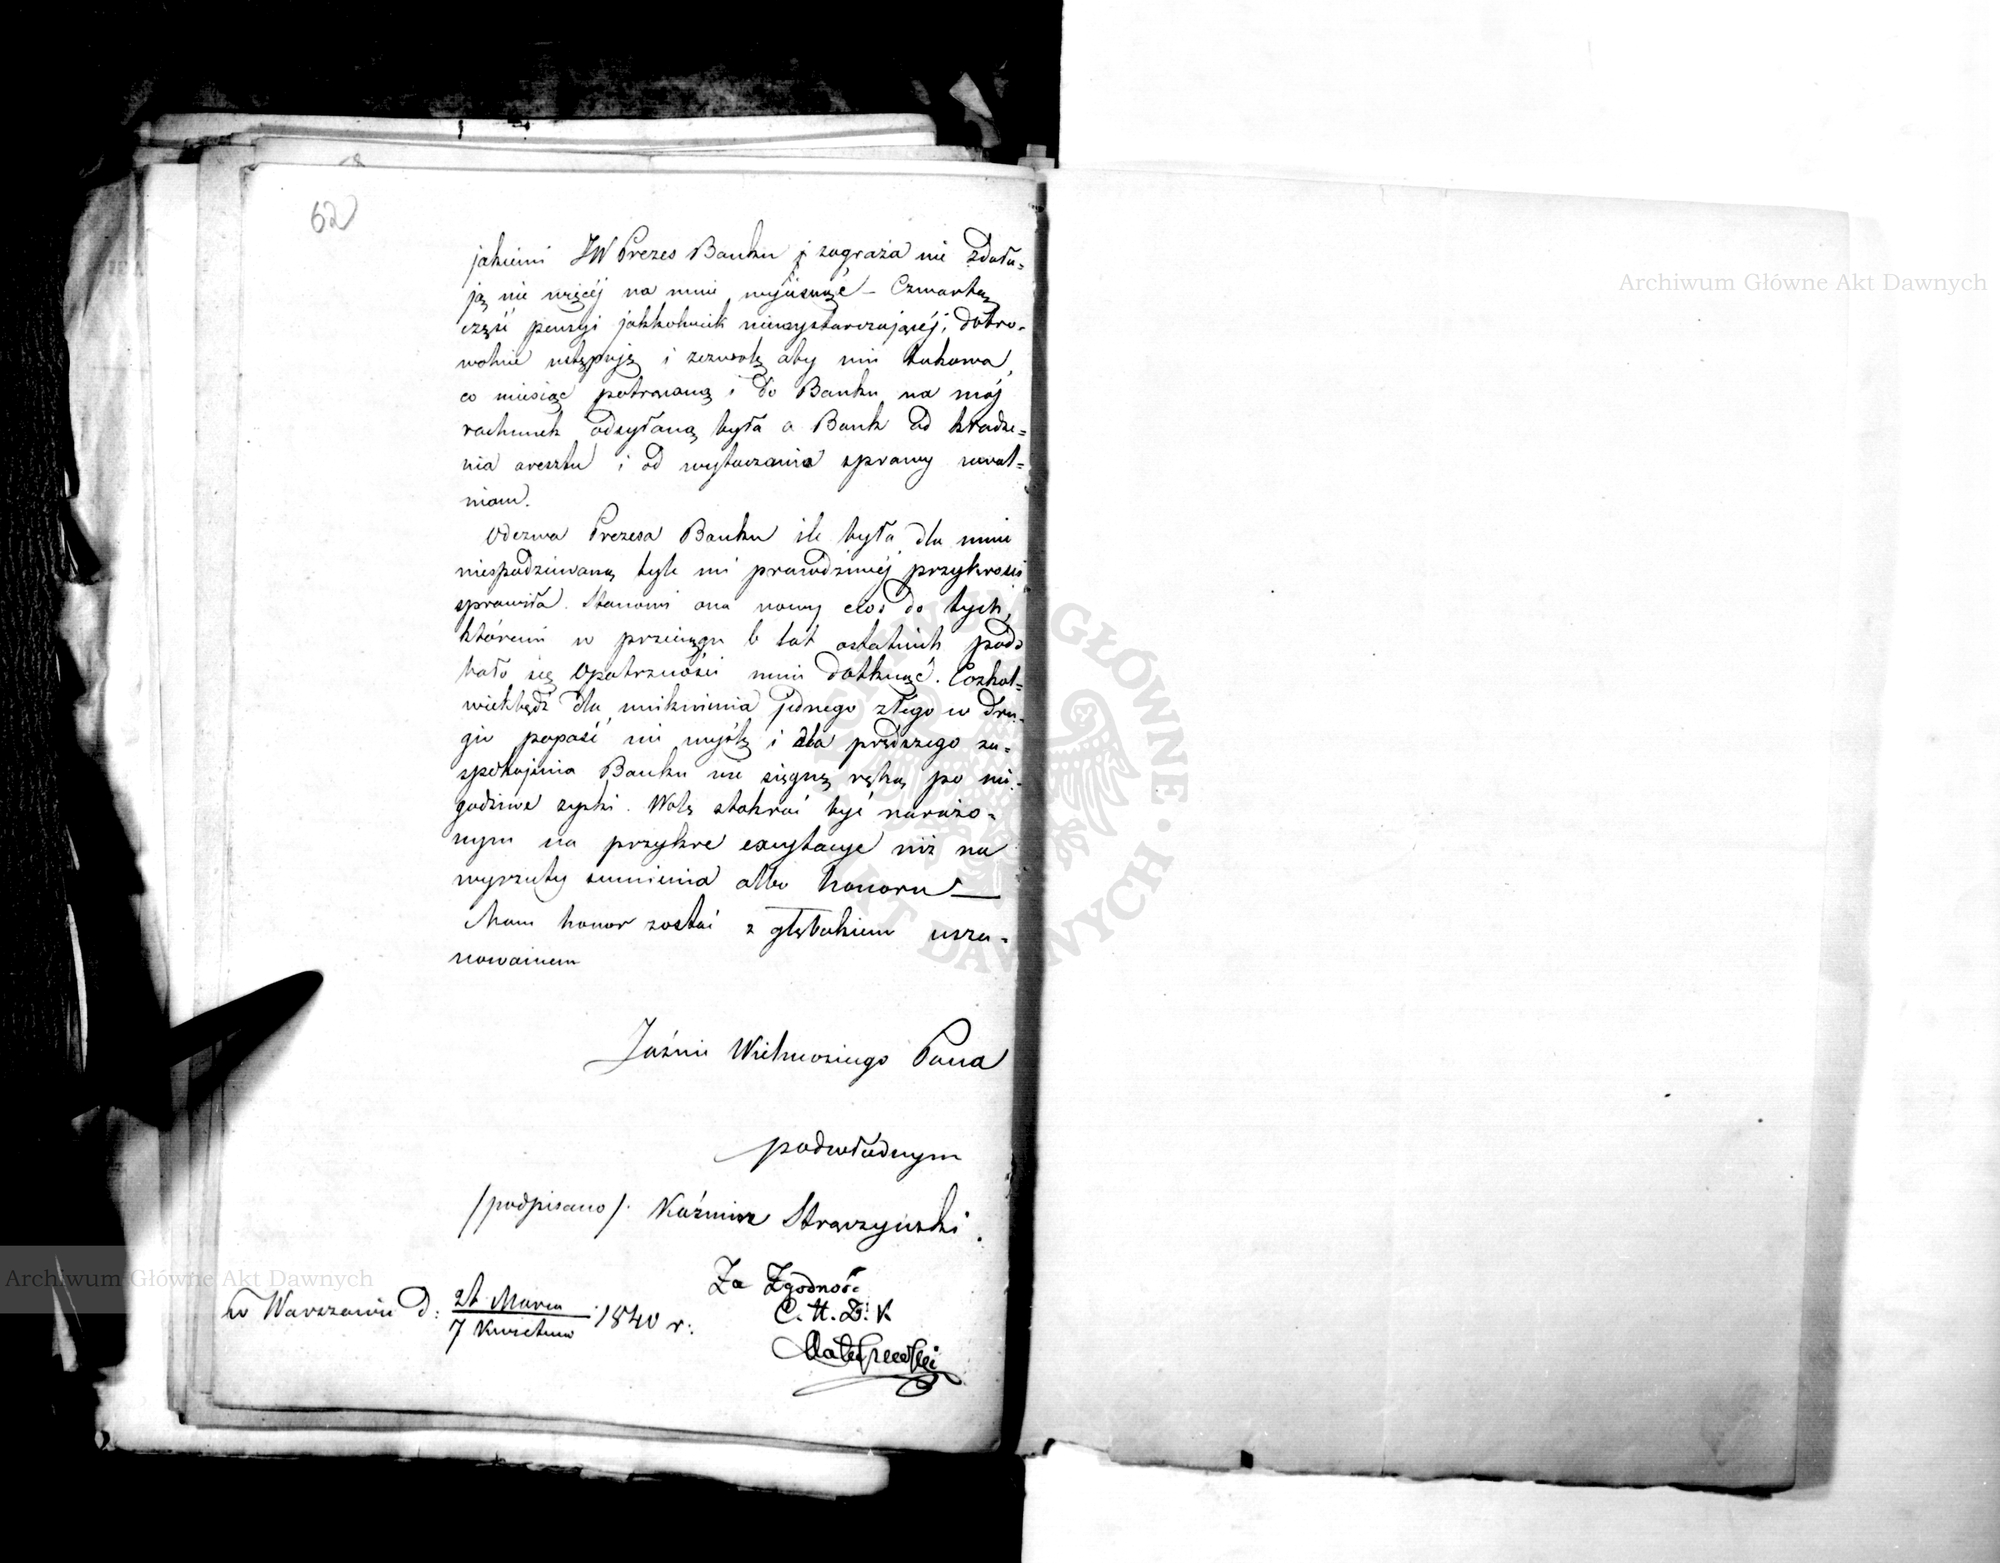 62
jakiemi JW Prezes Banku zagraża nie zdoła=
ją nic więcéj na mnie wycisnąć – Czwartą
część pensyi jakkolwiek niewystarczającéj, dobro-
wolnie ustępuję i zezwolę aby mi takowa,
co miesiąc potrącaną i do Banku na mój
rachunek odsyłaną była a Bank od kładze=
nia aresztu i od wytaczania sprawy uwal=
niam.
Odezwa Prezesa Banku ile była dla mnie
niespodziewaną tyle mi prawdziwéj przykrości
sprawiła. Stanowi ona nowy cios do tych,
któremi w przeciągu 6 lat ostatnich podo
bało się Opatrzności mnie dotknąć. Cozkol=
wiekbądź dla uniknienia jednego złego w dru-
gie popaść nie myślę i dla prędszego za=
spokojenia Banku nie sięgnę ręką po nie-
godziwe zyski. Wolę stokroć być narażo=
nym na przykre excytacye niż na
wyrzuty sumienia albo honoru —
Mam honor zostać z głębokiem usza=
nowaniem
Jaśnie Wielmożnego Pana
podwładnym
/podpisano/. Kaźmirz Stronczyński.
Za Zgodność
w Warszawie d: 26 Marca / 7 Kwietnia 1840 r: